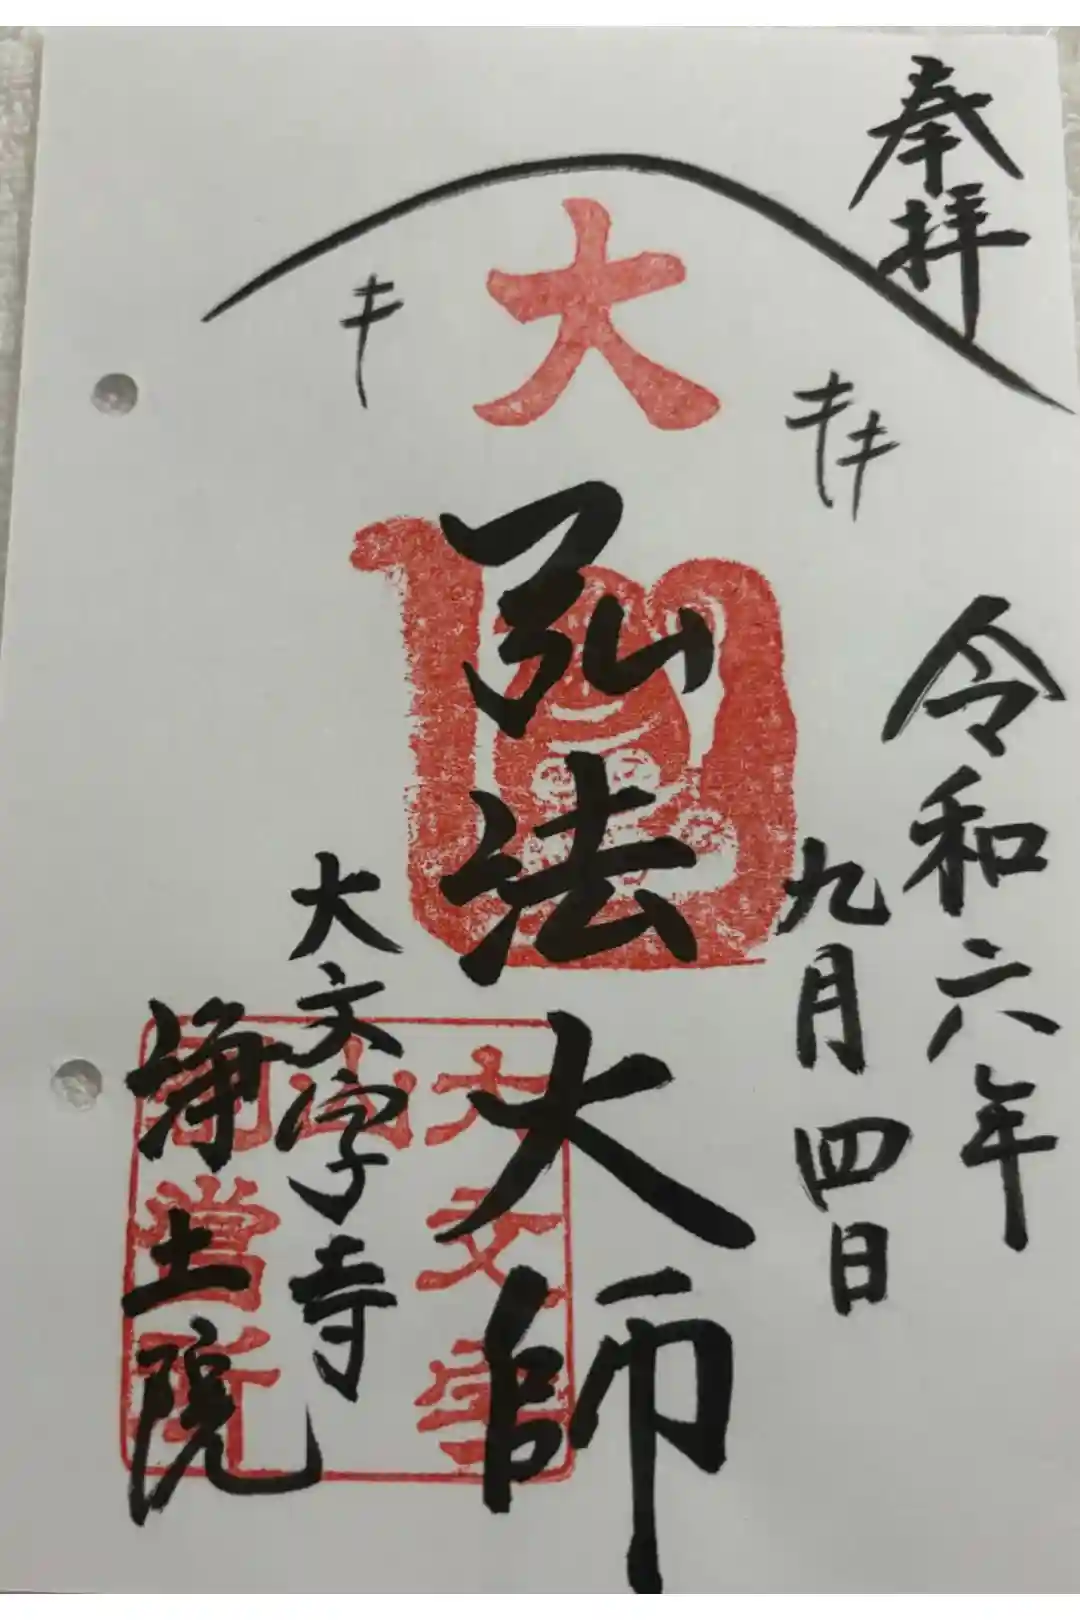 奉拝
令和六年
九月四日
大
弘法大師
大文字寺
浄土院
大文字
山